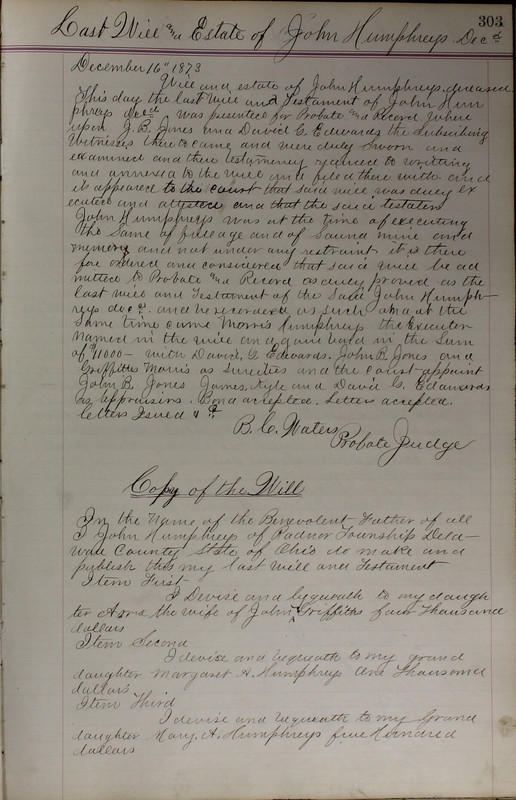 303
Last Will and Estate of John Humphreys Decd
December 16" 1873
Will and estate of John Humphreys deceased
This day the last Will and Testament of John Hum
phreys decd was presented for Probate and Record where
upon J. B. Jones and David G. Edwards the subscribing
Witnesses thereto came and were duly sworn and
examined and there testamony reduced to writing
and annexed to the will and filed there with and
it appeared to the court that said will was duly ex
ecuted and attested and that the said testator
John Humphreys was at the time of executing
the same of full age and of sound mind and
memory and not under any restraint it is there
fore ordered and considered that said will be ad
mitted to Probate and Record as duly proved as the
last will and Testament of the said John Humph-
reys decd. and be recorded as such and at the
same time came Morris Humphreys the Executor
named in the will and gave bond in the sum
of $11000- with David G Edwards. John B. Jones and
Griffith Morris as sureties and the court appoint
John B. Jones James Kyle and David G. Edawards
as appraisers. Bond accepted. Letters accepted.
letters Issued
B. C. Waters
Probate Judge
Copy of the Will
In the Name of the Benevolent Father of all
I John Humphreys of Radnor Township Dela-
ware County State of Ohio do make and
publish this my last will and Testament
Item First
I Devise and bequeath to my daugh
ter Ann the wife of John Griffiths four Thousand
dollars
Item Second
I devise and bequeath to my grand
daughter Margaret A. Humphreys One Thousand
dollars
Item Third
I devise and bequeath to my Grand
daughter Mary. A. Humphreys five Hundred
dollars